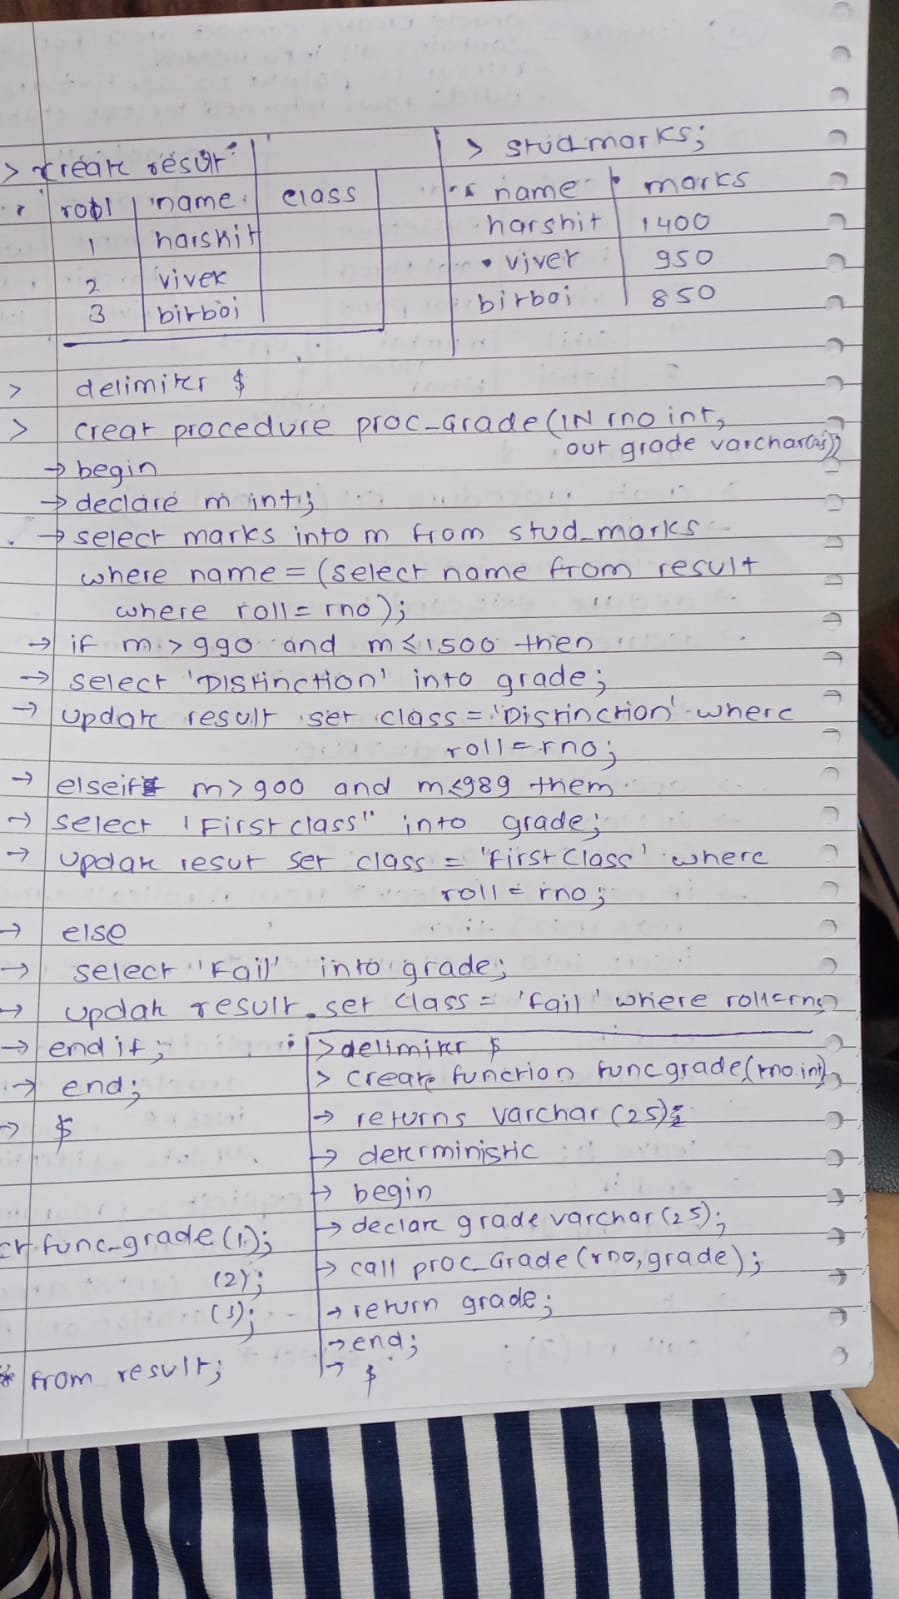 > create result
roll name class
1 harshit
2 vivek
3 birboi
> studmarks;
name marks
harshit 1400
vivek 950
birboi 850
> delimiter $
> creat procedure proc_Grade(IN rno int,
out grade varchar(25))
→ begin
→ declare m int;
→ select marks into m from stud_marks
where name = (select name from result
where roll = rno);
→ if m > 990 and m ≤ 1500 then
→ select 'Distinction' into grade;
→ update result set class = 'Distinction' where
roll = rno;
→ elseif m > 900 and m ≤ 989 them
→ select 'First class" into grade;
→ update resut set class = 'First Class' where
roll = rno;
→ else
→ select 'Fail' into grade;
→ update result set class = 'fail' where roll=rno;
→ end if;
→ end;
→ $
> delimiter $
> create function funcgrade(rno int)
→ returns varchar (25);
→ deterministic
→ begin
→ declare grade varchar (25);
→ call proc_Grade (rno, grade);
→ return grade;
→ end;
→ $
ct func_grade (1);
(2);
(3);
* from result;